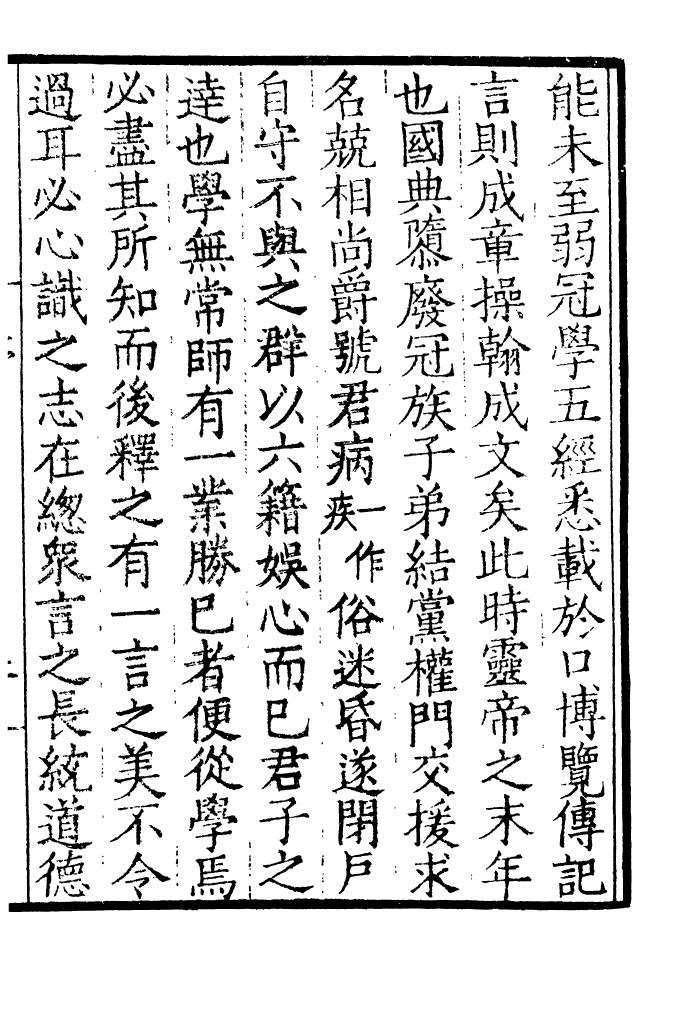 能未至弱冠學五經悉載於口博覽傳記
言則成章操翰成文矣此時靈帝之末年
也國典隳廢冠族子弟結黨權門交援求
名兢相尚爵號君病一作疾俗迷昏遂閉戶
自守不與之群以六籍娛心而已君子之
達也學無常師有一業勝已者便從學焉
必盡其所知而後釋之有一言之美不令
過耳必心識之志在緫衆言之長統道德